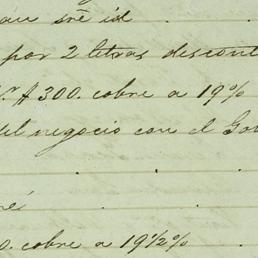 sre id . .
por 2 letras descont
$ 300. cobre a 19%
del negocio con el Go
. . .
. . .
0. cobre a 19 1/2%